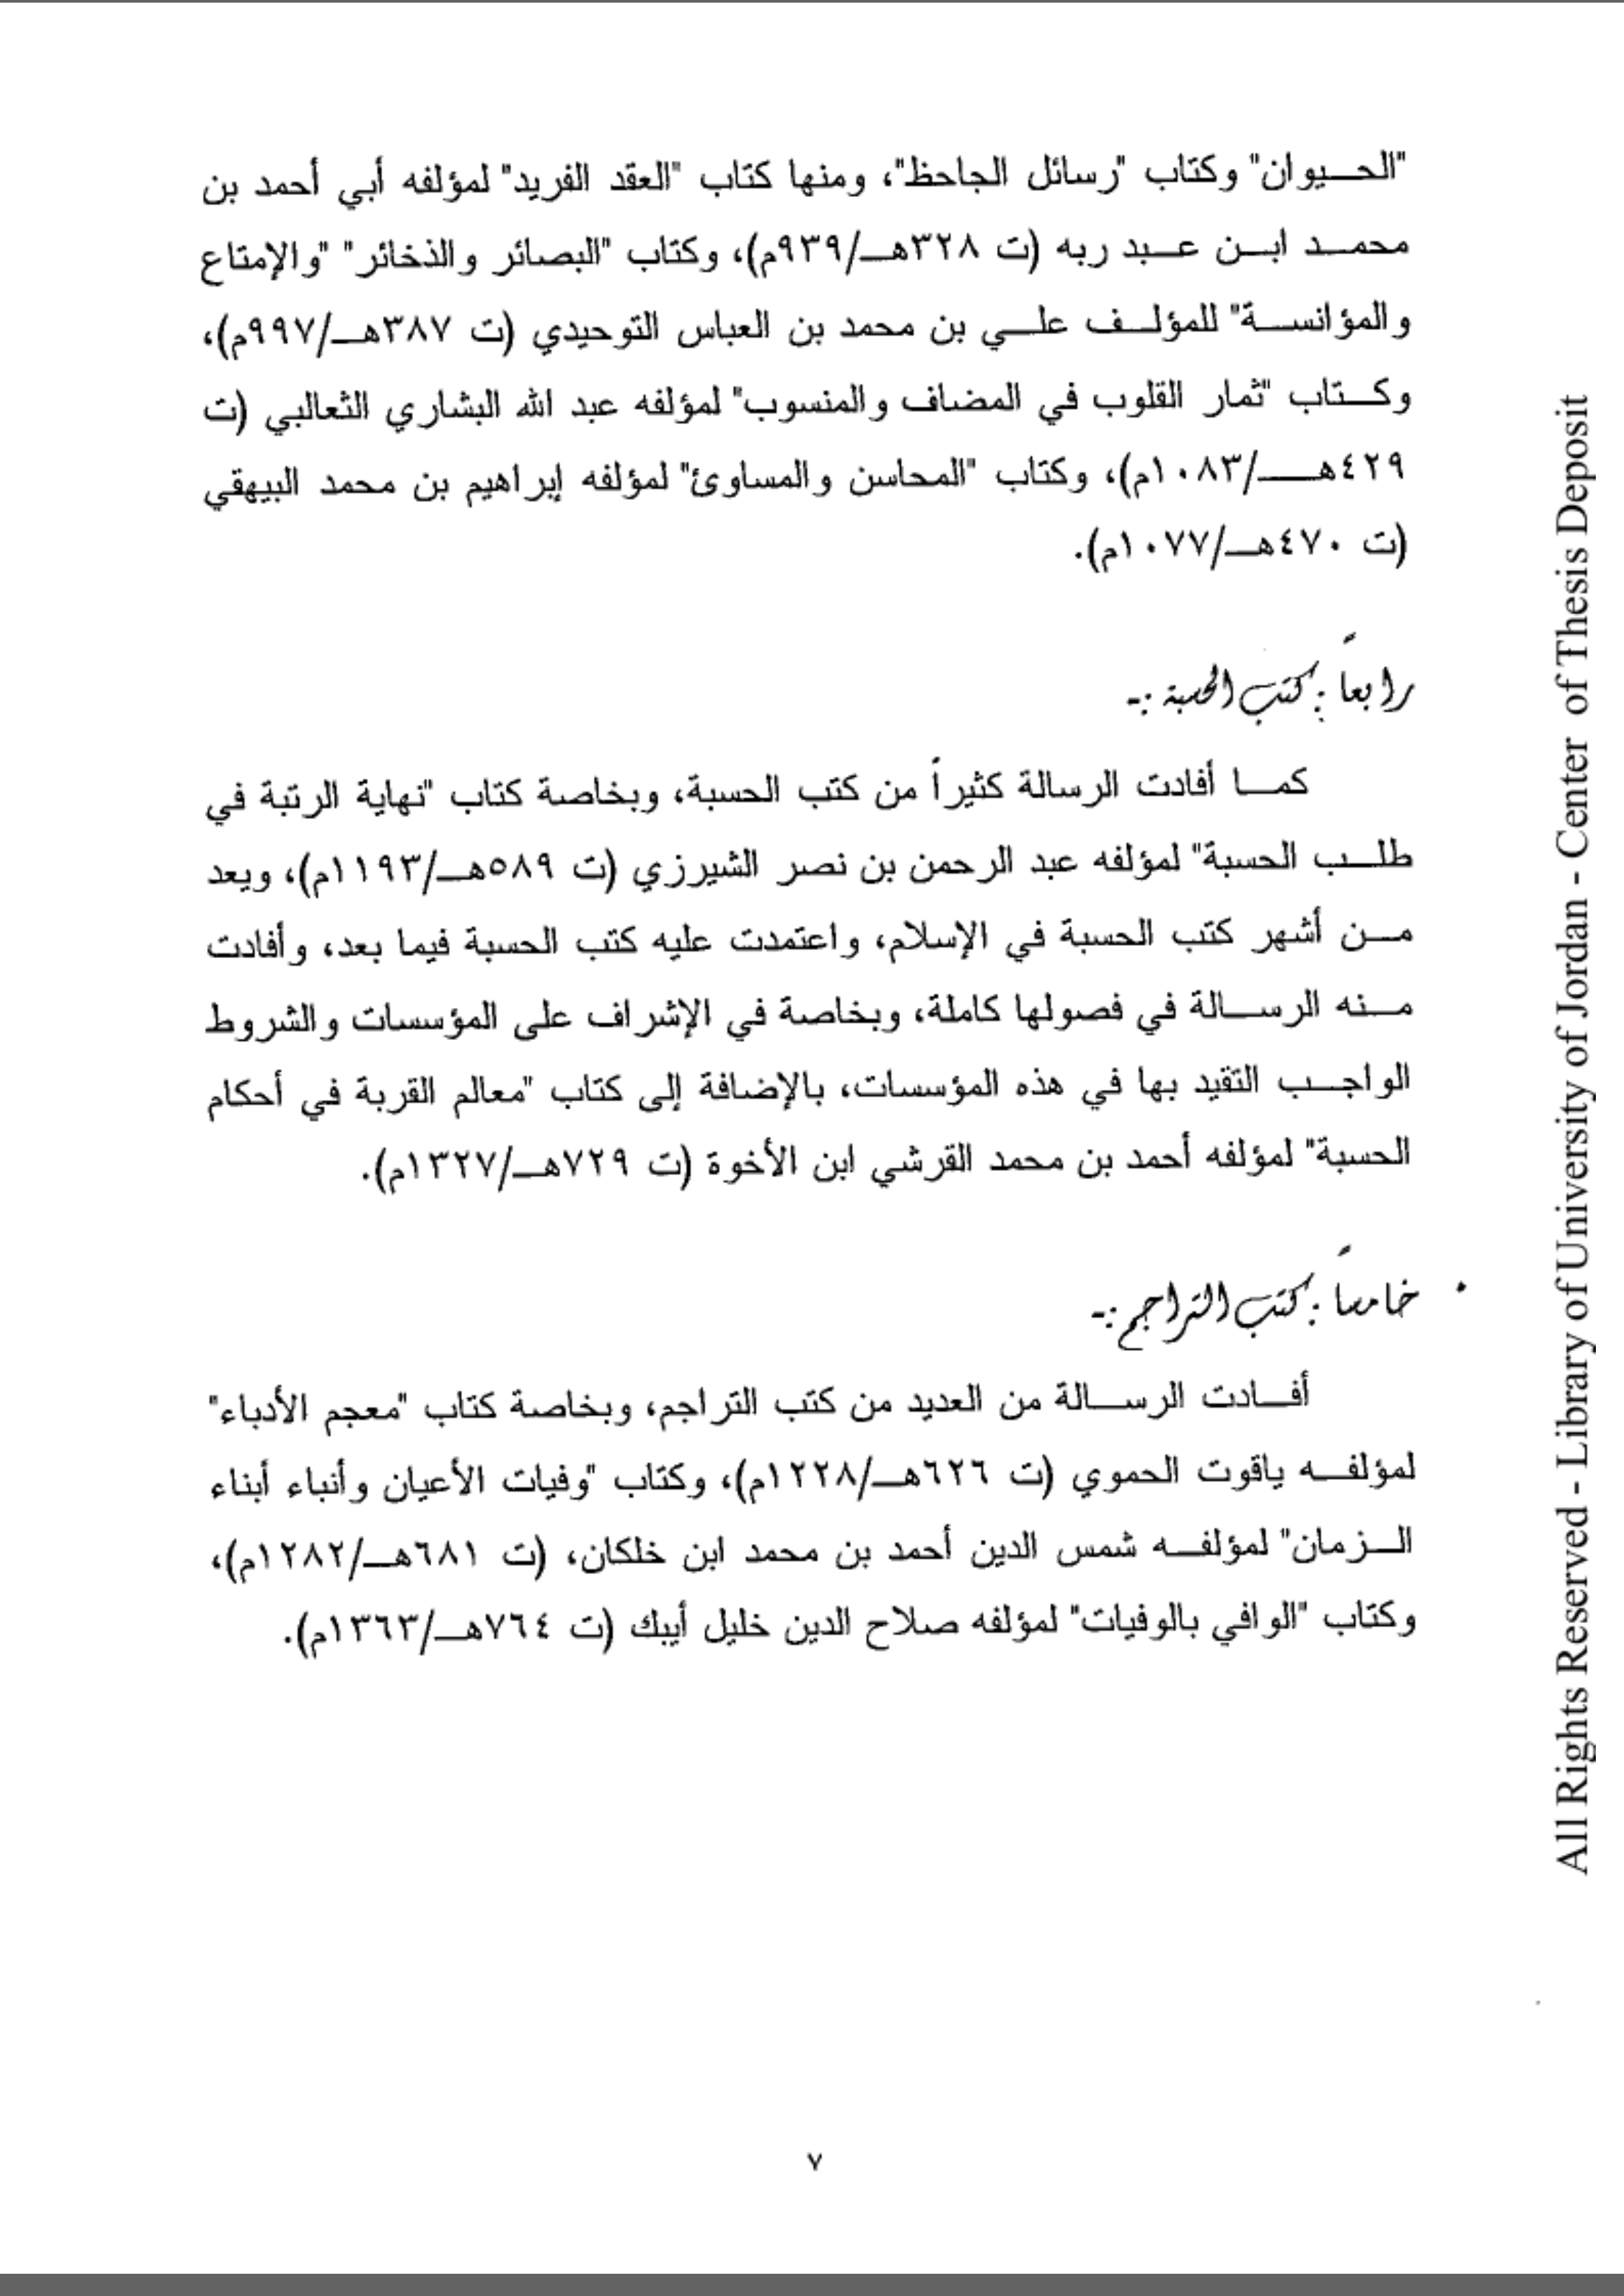 "الحيوان" وكتاب "رسائل الجاحظ"، ومنها كتاب "العقد الفريد" لمؤلفه أبي أحمد بن
محمد ابن عبد ربه (ت ٣٢٨هـ/٩٣٩م)، وكتاب "البصائر والذخائر" "والإمتاع
والمؤانسة" للمؤلف علي بن محمد بن العباس التوحيدي (ت ٣٨٧هـ/٩٩٧م)،
وكتاب "ثمار القلوب في المضاف والمنسوب" لمؤلفه عبد الله البشاري الثعالبي (ت
٤٢٩هـ/١٠٨٣م)، وكتاب "المحاسن والمساوئ" لمؤلفه إبراهيم بن محمد البيهقي
(ت ٤٧٠هـ/١٠٧٧م).
رابعاً: كتب الحسبة :-
كما أفادت الرسالة كثيراً من كتب الحسبة، وبخاصة كتاب "نهاية الرتبة في
طلب الحسبة" لمؤلفه عبد الرحمن بن نصر الشيرزي (ت ٥٨٩هـ/١١٩٣م)، ويعد
من أشهر كتب الحسبة في الإسلام، واعتمدت عليه كتب الحسبة فيما بعد، وأفادت
منه الرسالة في فصولها كاملة، وبخاصة في الإشراف على المؤسسات والشروط
الواجب التقيد بها في هذه المؤسسات، بالإضافة إلى كتاب "معالم القربة في أحكام
الحسبة" لمؤلفه أحمد بن محمد القرشي ابن الأخوة (ت ٧٢٩هـ/١٣٢٧م).
خامساً: كتب التراجم :-
أفادت الرسالة من العديد من كتب التراجم، وبخاصة كتاب "معجم الأدباء"
لمؤلفه ياقوت الحموي (ت ٦٢٦هـ/١٢٢٨م)، وكتاب "وفيات الأعيان وأنباء أبناء
الزمان" لمؤلفه شمس الدين أحمد بن محمد ابن خلكان، (ت ٦٨١هـ/١٢٨٢م)،
وكتاب "الوافي بالوفيات" لمؤلفه صلاح الدين خليل أيبك (ت ٧٦٤هـ/١٣٦٣م).
٧
All Rights Reserved - Library of University of Jordan - Center of Thesis Deposit